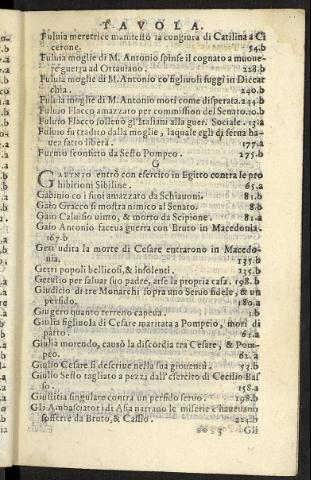 TAVOLA.
Fuluia meretrice manifestò la congiura di Catilina a Ci
cerone. 54.b
Fuluia moglie di M. Antonio spinse il cognato a muoue-
re guerra ad Ottauiano. 228.b
Fuluia moglie di M. Antonio co' figliuoli fuggì in Diceat
chia. 240.b
Fuluia moglie di M. Antonio morì come disperata. 244.b
Fuluio Flacco amazzato per commission del Senato. 10.b
Fuluio Flacco solleuò gl'Italiani alla guer. Sociale. 13.a
Fuluio fu tradito dalla moglie, laquale egli di serua ha-
uea fatto libera. 177.a
Furnio sconfitto da Sesto Pompeo. 275.b
G
GABINIO entrò con esercito in Egitto contra le pro
hibitioni Sibiline. 65.a
Gabinio co i suoi amazzato da Schiauoni. 81.b
Gaio Gracco si mostra nimico al Senato. 8.b
Gaio Caluisio uinto, & morto da Scipione. 81.a
Gaio Antonio faceua guerra con Bruto in Macedonia.
167.b
Geti udita la morte di Cesare entrarono in Macedo-
nia. 135.b
Getti popoli bellicosi, & insolenti. 135.b
Getulio per saluar suo padre, arse la propria casa. 198.b
Giudicio di tre Monarchi sopra uno Seruo fidele, & un
perfido. 180.a
Giugero quanto terreno capeua. 1.b
Giulia figliuola di Cesare maritata a Pompeio, morì di
parto. 61.a
Giulia morendo, causò la discordia tra Cesare, & Pom-
peo. 62.a
Giulio Cesare si descriue nella sua giouentù. 53.b
Giulio Sesto tagliato a pezzi dall'esercito di Cecilio Bas
so. 158.a
Giustitia singulare contra un perfido seruo. 198.b
Gli Ambasciatori di Asia narrano le miserie c'haueuano
sofferte da Bruto, & Cassio. 224.b
Gli